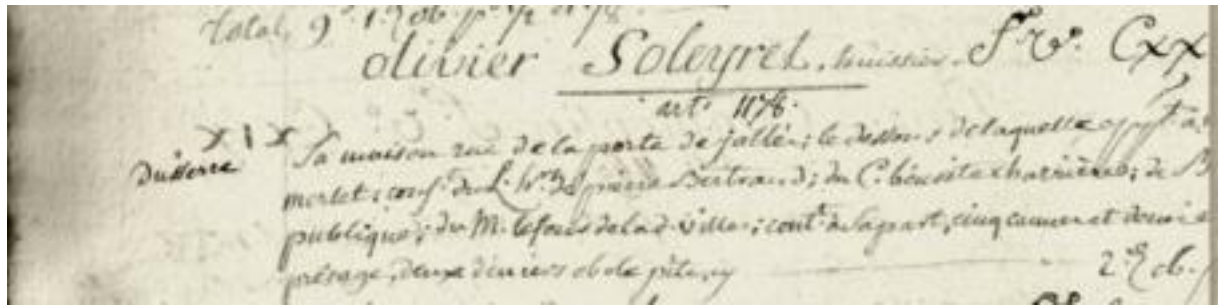 Total, 9
Olivier Soleyret, huissier. Cxx
art. 1178.
XIX
Sa maison rue de la porte de jallés; le dessous de laquelle app.t a
Dusserre
mortet; conf. du L. pierre Bertrand; du C. benoite charrières; de B
publique; du M. le fossé de la d. ville; cont. sa part, cinq cannes et demie
présage, deux deniers obole pite, cy 2 ob.